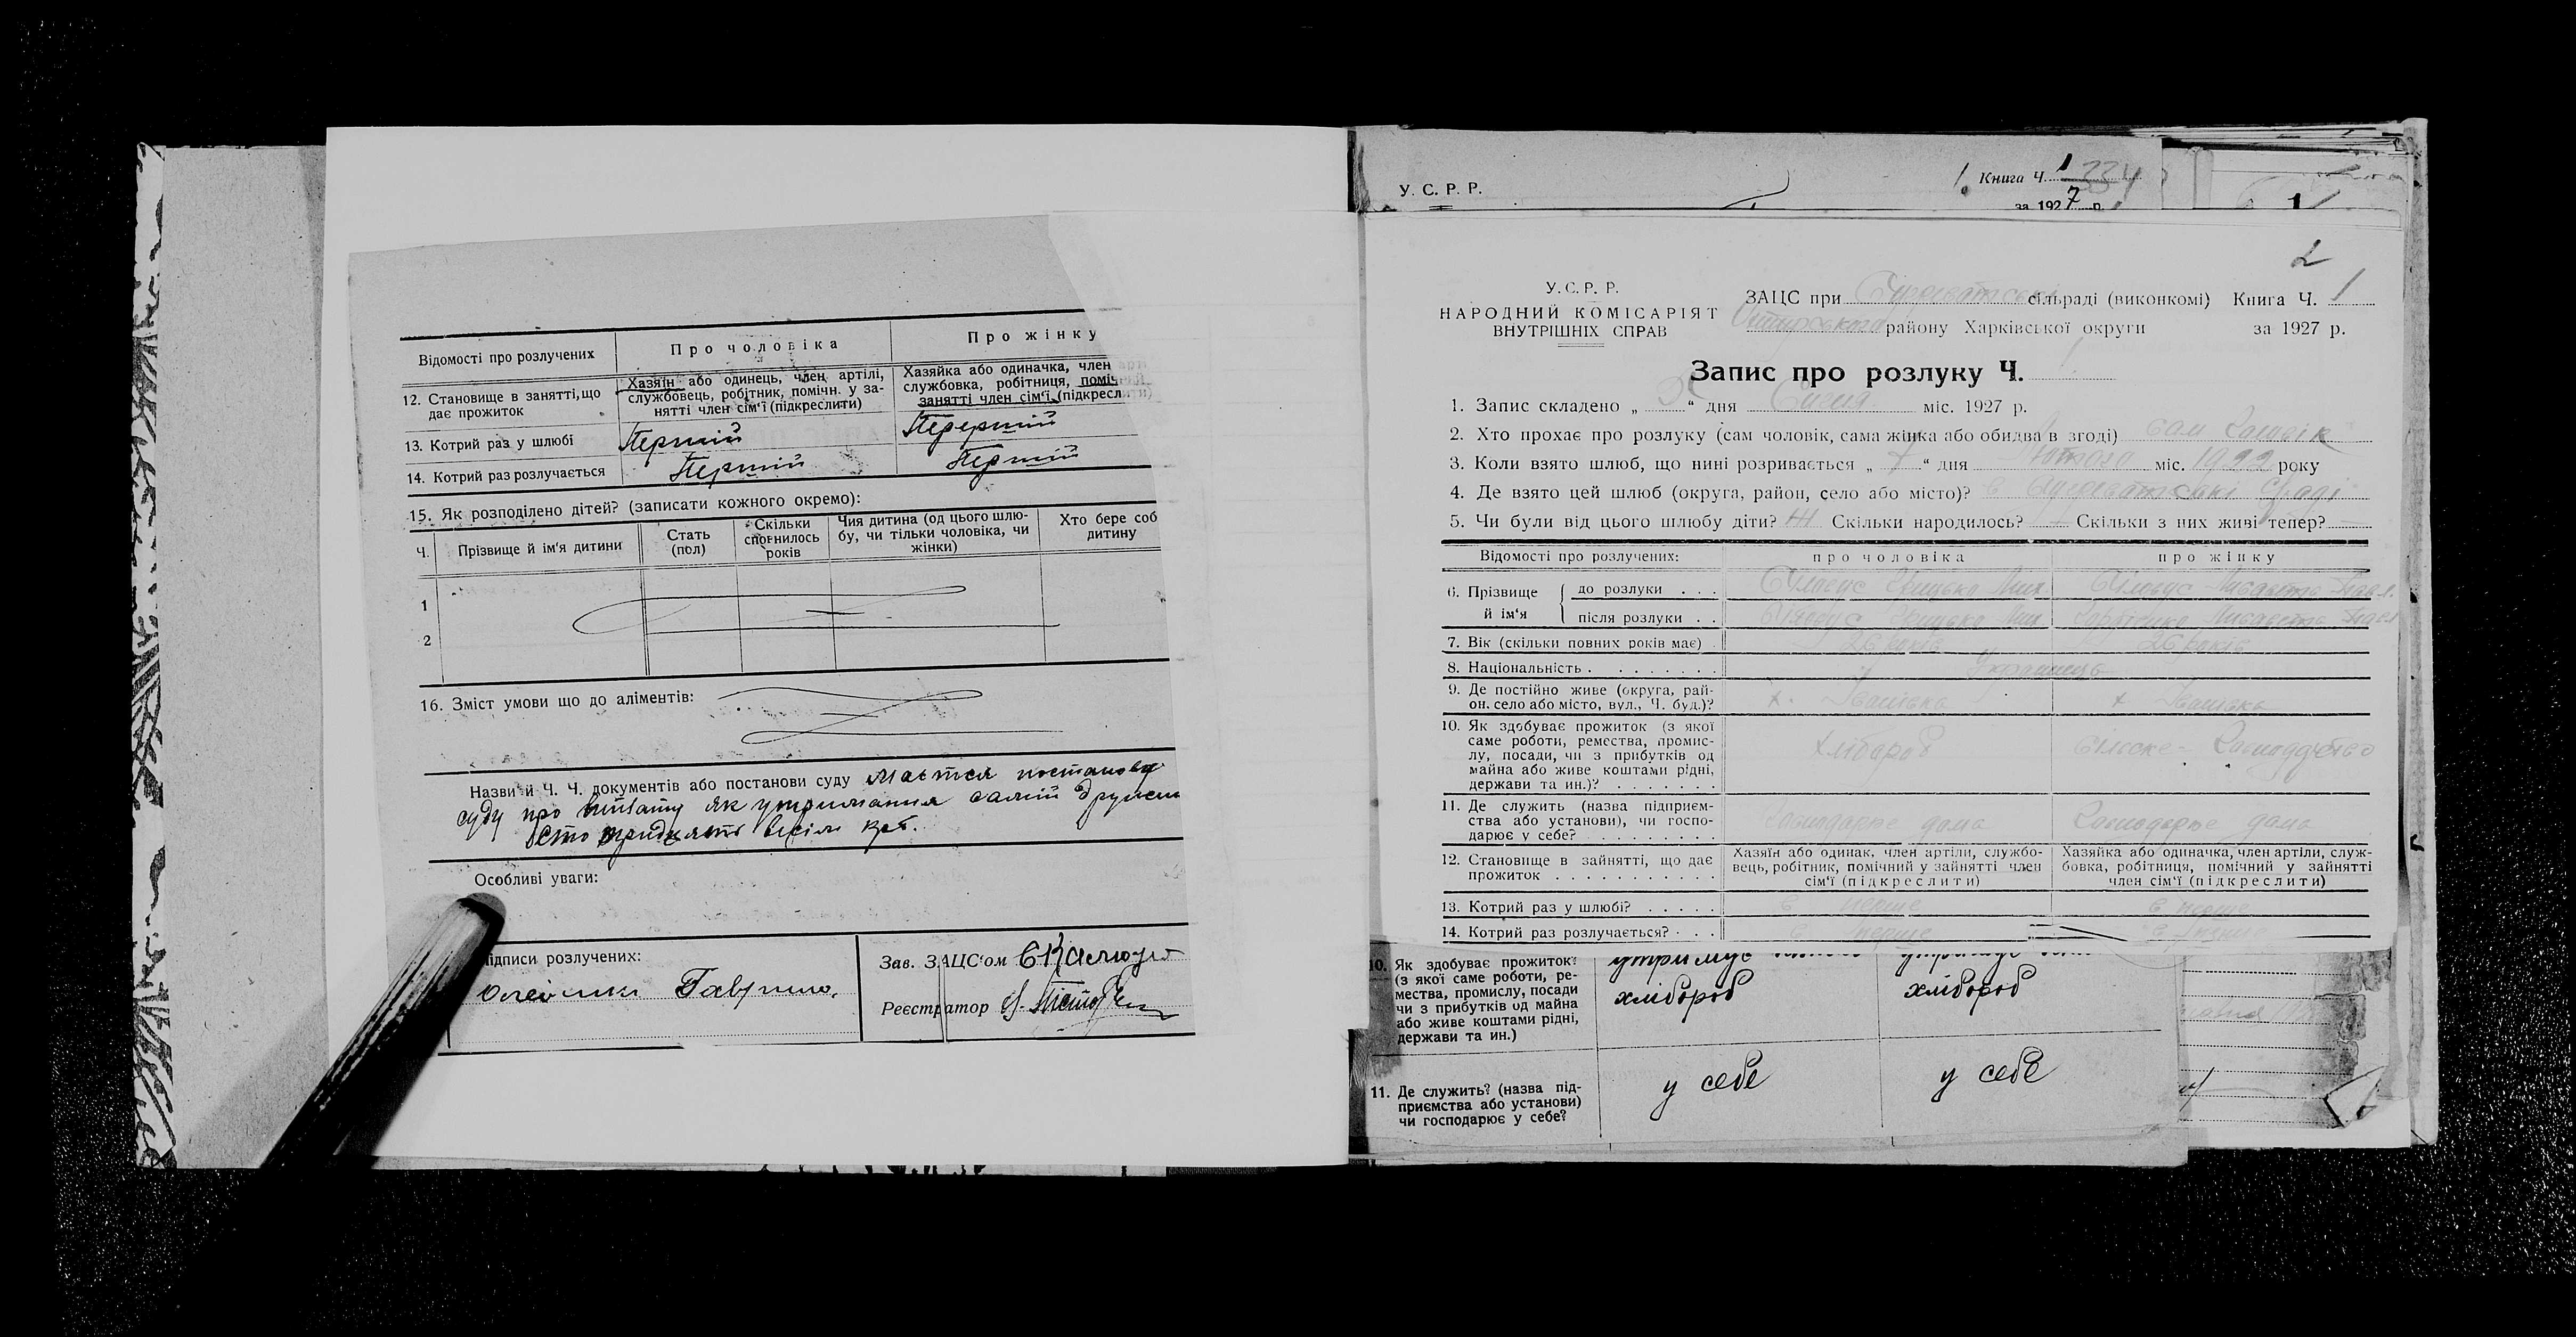 Відомості про розлучених
Про чоловіка
Про жінку
12. Становище в занятті, що дає прожиток
Хазяїн або одинець, член артілі,
службовець, робітник, помічн. у за-
нятті член сім'ї (підкреслити)
Хазяйка або одиначка, член
службовка, робітниця, поміч
занятті член сім'ї (підкреслити)
13. Котрий раз у шлюбі
Першій
14. Котрий раз розлучається
Першій
Першій
15. Як розподілено дітей? (записати кожного окремо):
Ч.
Прізвище й ім'я дитини
Стать (пол)
Скільки сповнилось років
Чия дитина (од цього шлю-
бу, чи тільки чоловіка, чи
жінки)
Хто бере соб
дитину
1
2
16. Зміст умови що до аліментів:
Назви й Ч. Ч. документів або постанови суду мається постанова
суду про виплату як утримання самій
сто тридцять вісім крб.
Особливі уваги:
ідписи розлучених:
Гаврило
Зав. ЗАЦС'ом
Реєстратор
У. С. Р. Р.
1. Книга Ч. 1 334
за 1927 р.
1
2
У. С. Р. Р.
НАРОДНИЙ КОМІСАРІЯТ
ВНУТРІШНІХ СПРАВ
ЗАЦС при сільраді (виконкомі) Книга Ч. 1
району Харківської округи за 1927 р.
Запис про розлуку Ч. 1
1. Запис складено „ “ дня Січня міс. 1927 р.
2. Хто прохає про розлуку (сам чоловік, сама жінка або обидва в згоді) сам
3. Коли взято шлюб, що нині розривається „ 7 “ дня Лютого міс. 1922 року
4. Де взято цей шлюб (округа, район, село або місто)? в
5. Чи були від цього шлюбу діти? Скільки народилось? Скільки з них живі тепер?
Відомості про розлучених:
про чоловіка
про жінку
6. Прізвище й ім'я
до розлуки . . .
після розлуки . .
7. Вік (скільки повних років має)
26 років
26 років
8. Національність . . . . . . . .
Українець
9. Де постійно живе (округа, рай-
он, село або місто, вул., Ч. буд.)?
х. Іванівка
х Іванівка
10. Як здобуває прожиток (з якої
саме роботи, ремества, промис-
лу, посади, чи з прибутків од
майна або живе коштами рідні,
держави та ин.)? . . . . . . .
хлібороб
11. Де служить (назва підприєм-
ства або установи), чи госпо-
дарює у себе? . . . . . . . .
дома
дома
12. Становище в зайнятті, що дає
прожиток . . . . . . . . . . .
Хазяїн або одинак, член артіли, службо-
вець, робітник, помічний у зайнятті член
сім'ї (підкреслити)
Хазяйка або одиначка, член артіли, служ-
бовка, робітниця, помічний у зайнятті
член сім'ї (підкреслити)
13. Котрий раз у шлюбі? . . . . .
в перше
в перше
14. Котрий раз розлучається? . . .
в перше
10. Як здобуває прожиток?
(з якої саме роботи, ре-
мества, промислу, посади
чи з прибутків од майна
або живе коштами рідні,
держави та ин.)
хлібороб
хлібороб
11. Де служить? (назва під-
приємства або установи)
чи господарює у себе?
у себе
у себе